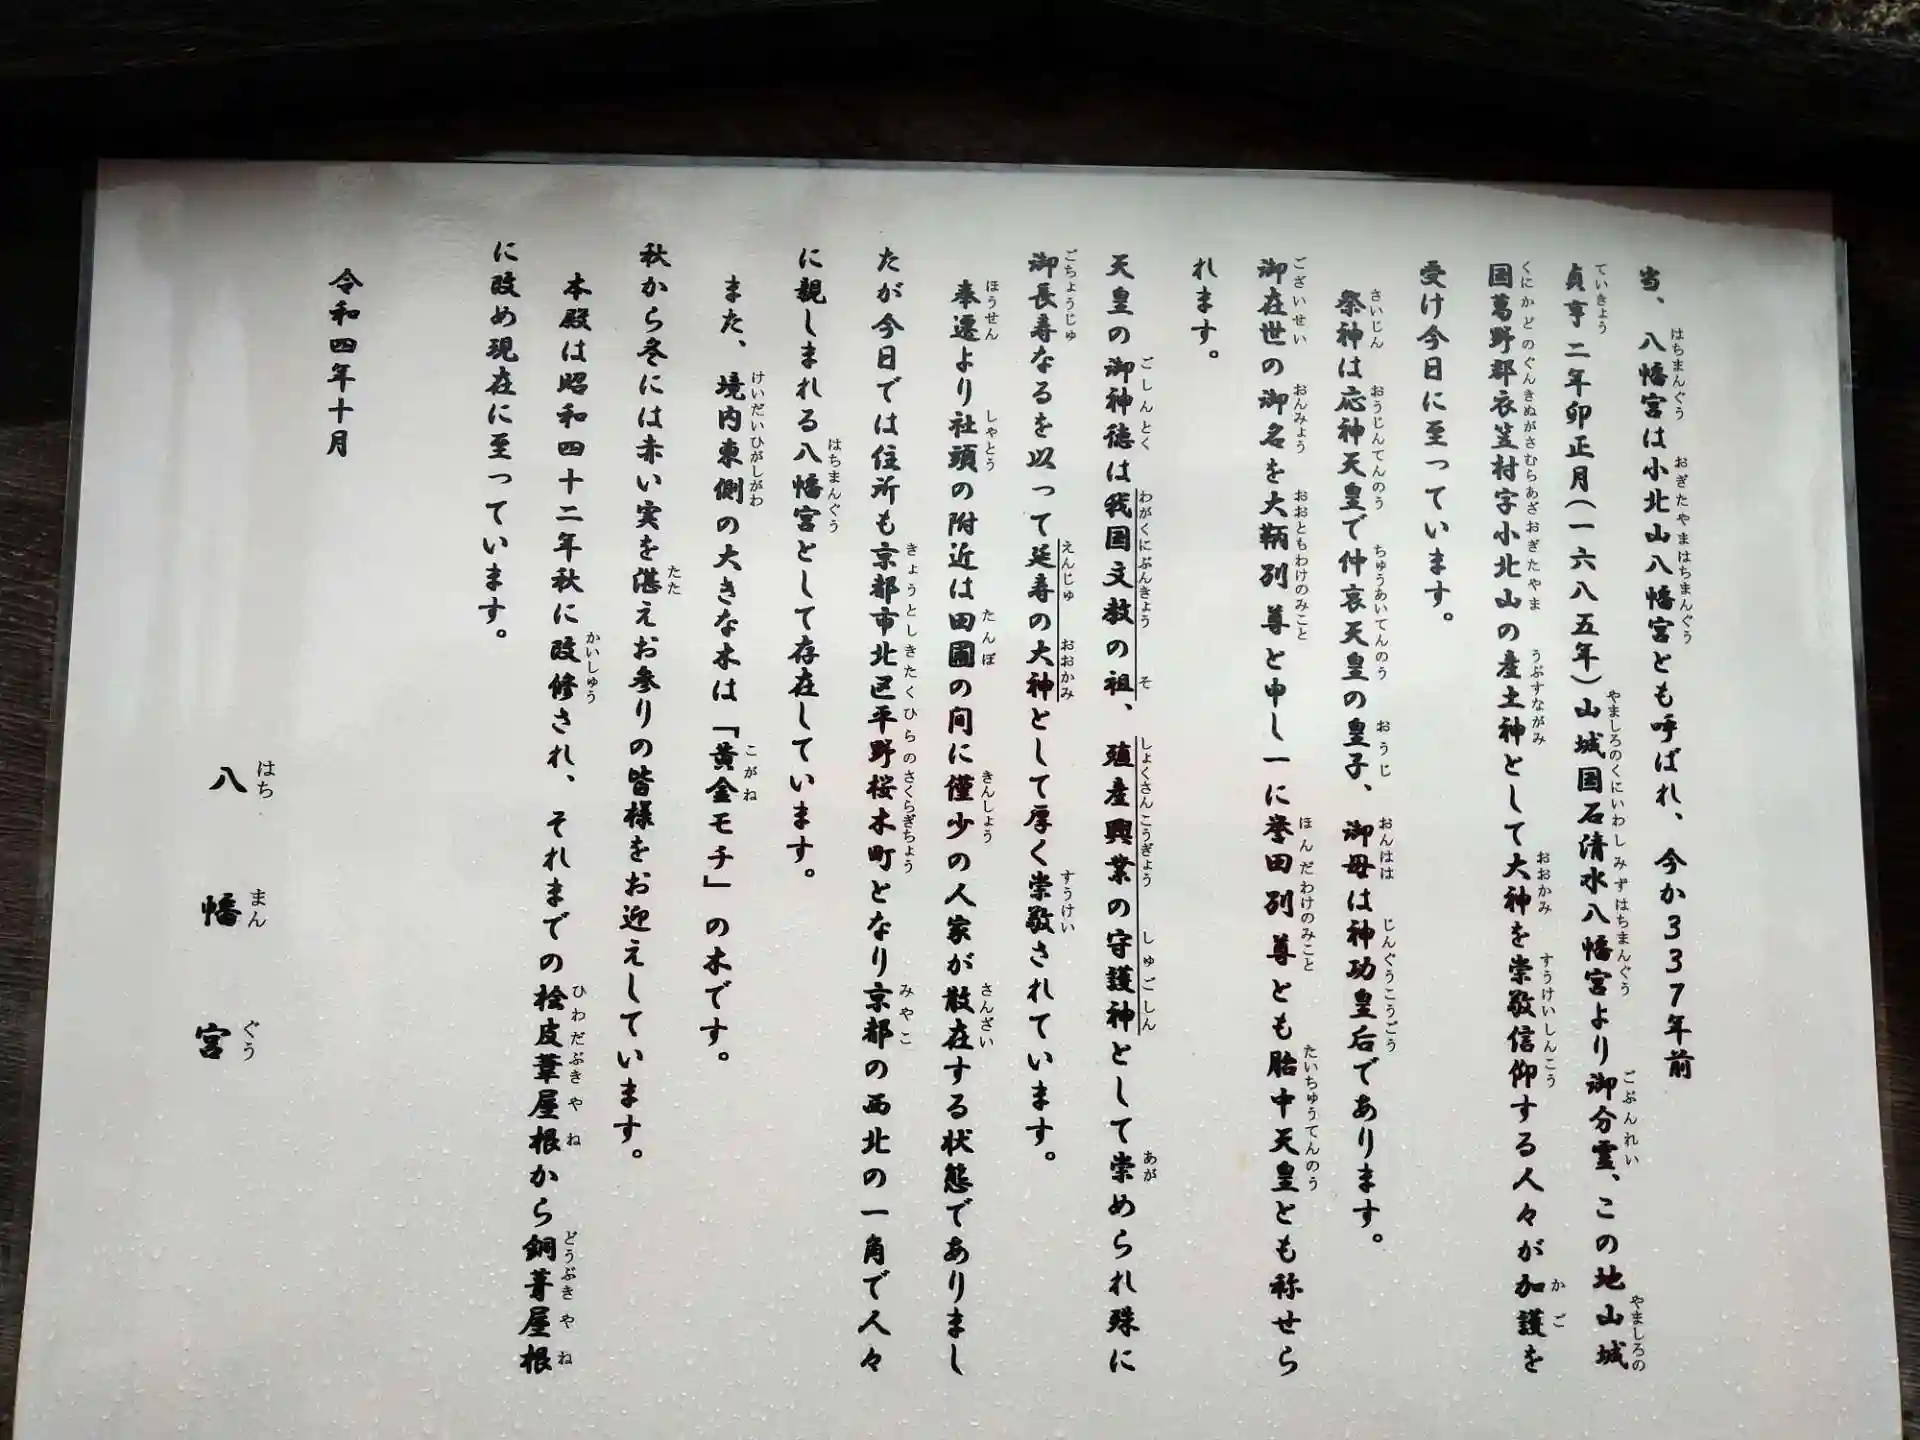 当、八幡宮は小北山八幡宮とも呼ばれ、今か337年前
貞亨二年卯正月(一六八五年)山城国石清水八幡宮より御分霊、この地山城
国葛野郡衣笠村字小北山の産土神として大神を崇敬信仰する人々が加護を
受け今日に至っています。
祭神は応神天皇で仲哀天皇の皇子、御母は神功皇后であります。
御在世の御名を大鞆別尊と申し一に誉田別尊とも胎中天皇とも称せら
れます。
天皇の御神徳は我国文教の祖、殖産興業の守護神として崇められ殊に
御長寿なるを以って延寿の大神として厚く崇敬されています。
奉遷より社頭の附近は田圃の間に僅少の人家が散在する状態でありまし
たが今日では住所も京都市北区平野桜木町となり京都の西北の一角で人々
に親しまれる八幡宮として存在しています。
また、境内東側の大きな木は「黄金モチ」の木です。
秋から冬には赤い実を湛えお参りの皆様をお迎えしています。
本殿は昭和四十二年秋に改修され、それまでの桧皮葺屋根から銅葺屋根
に改め現在に至っています。
令和四年十月
八幡宮